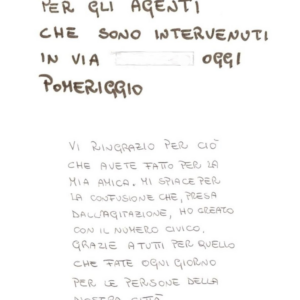 PER GLI AGENTI
CHE SONO INTERVENUTI
IN VIA OGGI
POMERIGGIO
VI RINGRAZIO PER CIÒ
CHE AVETE FATTO PER LA
MIA AMICA. MI SPIACE PER
LA CONFUSIONE CHE, PRESA
DALL'AGITAZIONE, HO CREATO
CON IL NUMERO CIVICO,
GRAZIE A TUTTI PER QUELLO
CHE FATE OGNI GIORNO
PER LE PERSONE DELLA
NOSTRA CITTÀ